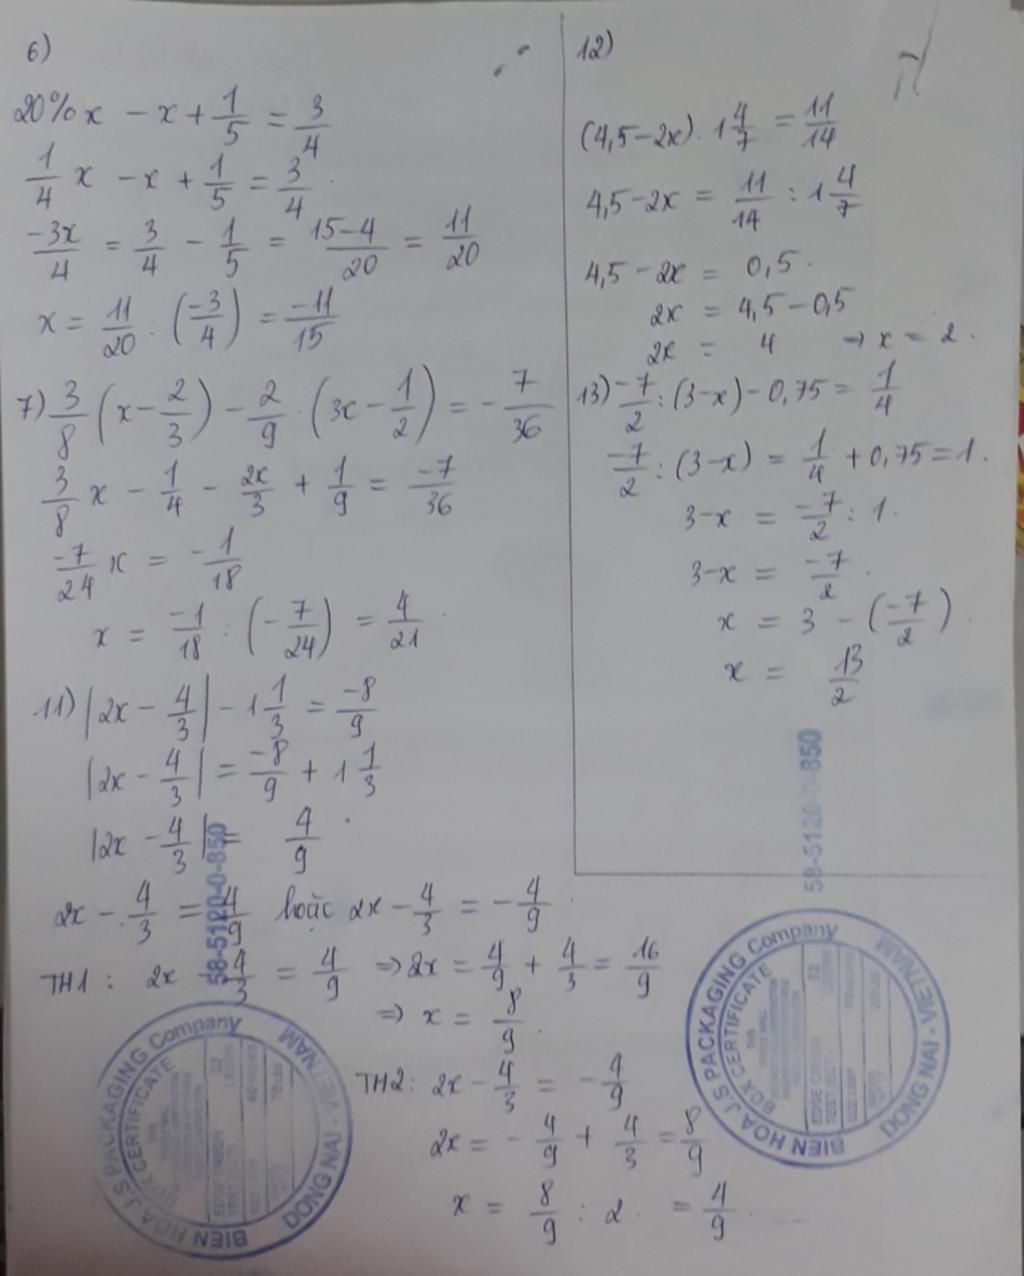 6)
20%x - x + 1/5 = 3/4
1/4 x - x + 1/5 = 3/4
-3x/4 = 3/4 - 1/5 = 15-4/20 = 11/20
x = 11/20 : (-3/4) = -11/15
7) 3/8 (x - 2/3) - 2/9 . (3x - 1/2) = - 7/36
3/8 x - 1/4 - 2x/3 + 1/9 = -7/36
-7/24 x = - 1/18
x = -1/18 : (- 7/24) = 4/21
11) |2x - 4/3| - 1 1/3 = -8/9
|2x - 4/3| = -8/9 + 1 1/3
|2x - 4/3| = 4/9
2x - 4/3 = 4/9 hoặc 2x - 4/3 = - 4/9
TH1 : 2x - 4/3 = 4/9 => 2x = 4/9 + 4/3 = 16/9
=> x = 8/9
TH2: 2x - 4/3 = - 4/9
2x = - 4/9 + 4/3 = 8/9
x = 8/9 : 2 = 4/9
12)
(4,5 - 2x) . 1 4/7 = 11/14
4,5 - 2x = 11/14 : 1 4/7
4,5 - 2x = 0,5
2x = 4,5 - 0,5
2x = 4 → x = 2
13) -7/2 : (3-x) - 0,75 = 1/4
-7/2 : (3-x) = 1/4 + 0,75 = 1
3-x = -7/2 : 1
3-x = -7/2
x = 3 - (-7/2)
x = 13/2
58-5120-0-850
BIEN HOA J.S PACKAGING Company
DONG NAI - VIETNAM
BOX CERTIFICATE
58-5120-0-850
BIEN HOA J.S PACKAGING Company
DONG NAI - VIETNAM
BOX CERTIFICATE